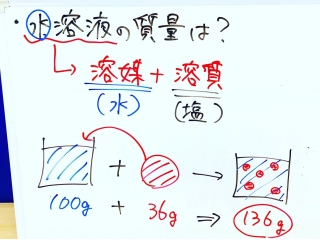 ・水溶液の質量は?
溶媒+溶質
(水) (塩)
+ →
100g + 36g ⇒ 136g